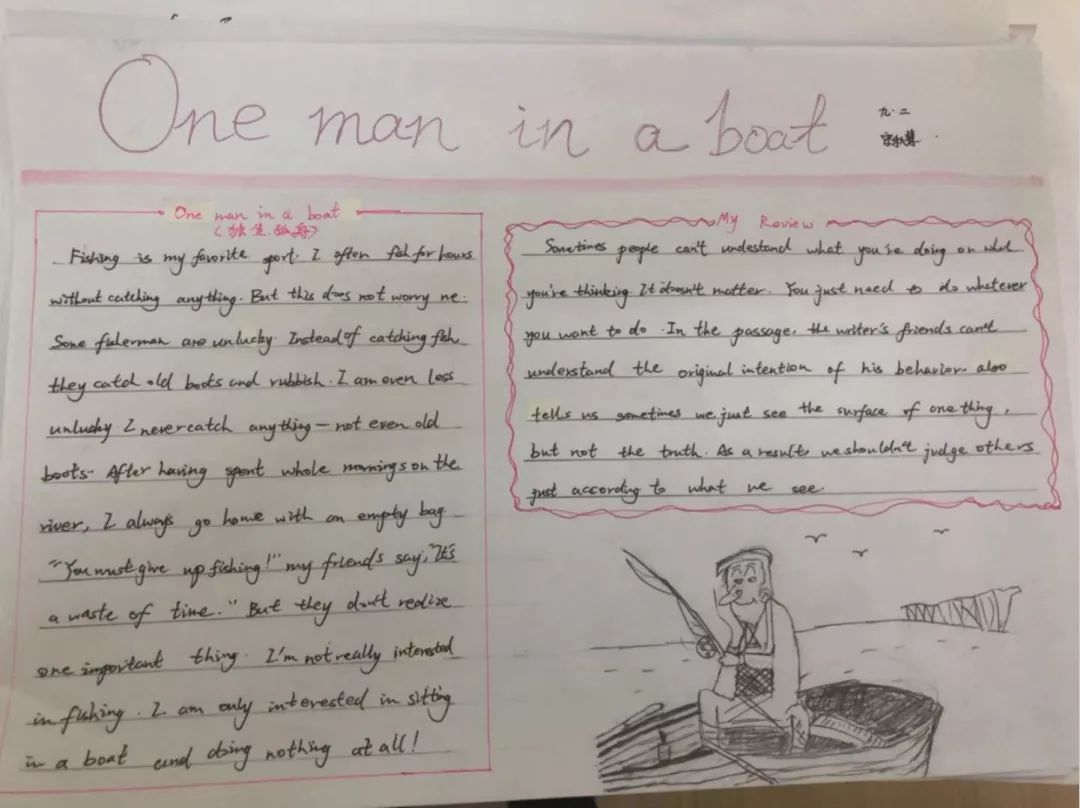 One man in a boat
九.二
One man in a boat
(独坐孤舟)
Fishing is my favorite sport. I often fish for hours
without catching anything. But this does not worry me.
Some fisherman are unlucky. Instead of catching fish,
they catch old boots and rubbish. I am even less
unlucky. I never catch anything — not even old
boots. After having spent whole mornings on the
river, I always go home with an empty bag
"You must give up fishing!" my friends say, "It's
a waste of time." But they don't realize
one important thing. I'm not really interested
in fishing. I am only interested in sitting
in a boat and doing nothing at all!
My Review
Sometimes people can't understand what you're doing or what
you're thinking. It doesn't matter. You just need to do whatever
you want to do. In the passage, the writer's friends can't
understand the original intention of his behavior. also
tells us sometimes we just see the surface of one thing,
but not the truth. As a result, we shouldn't judge others
just according to what we see.